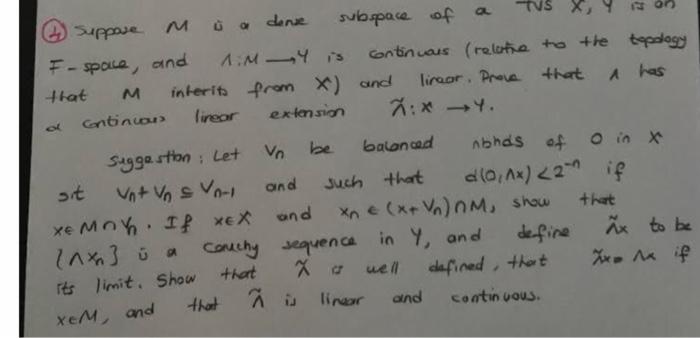 ④ Suppose M is a dense subspace of a TVS X, Y is an
F-space, and Λ: M → Y is continuous (relative to the topology
that M inherits from X) and linear. Prove that Λ has
a continuous linear extension Λ̃: X → Y.
Suggestion: Let Vn be balanced nbhds of 0 in X
s.t Vn + Vn ⊆ Vn-1 and such that d(0, Λx) < 2^-n if
x ∈ M ∩ Vn. If x ∈ X and xn ∈ (x + Vn) ∩ M, show that
{Λxn} is a Cauchy sequence in Y, and define Λ̃x to be
its limit. Show that Λ̃ is well defined, that Λ̃x = Λx if
x ∈ M, and that Λ̃ is linear and continuous.